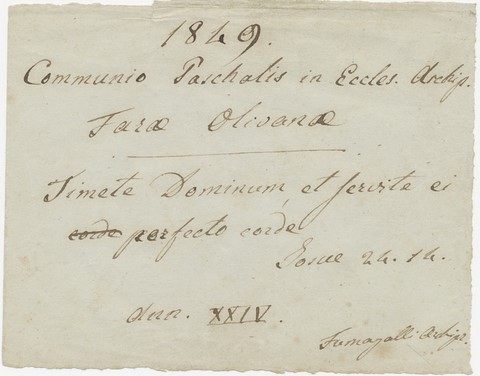 1849.
Communio Paschalis in Eccles. Archip.
Faræ Olivanæ
Timete Dominum, et servite ei
corde perfecto corde
Josue 24. 14.
Ann. XXIV.
Fumagalli Archip.